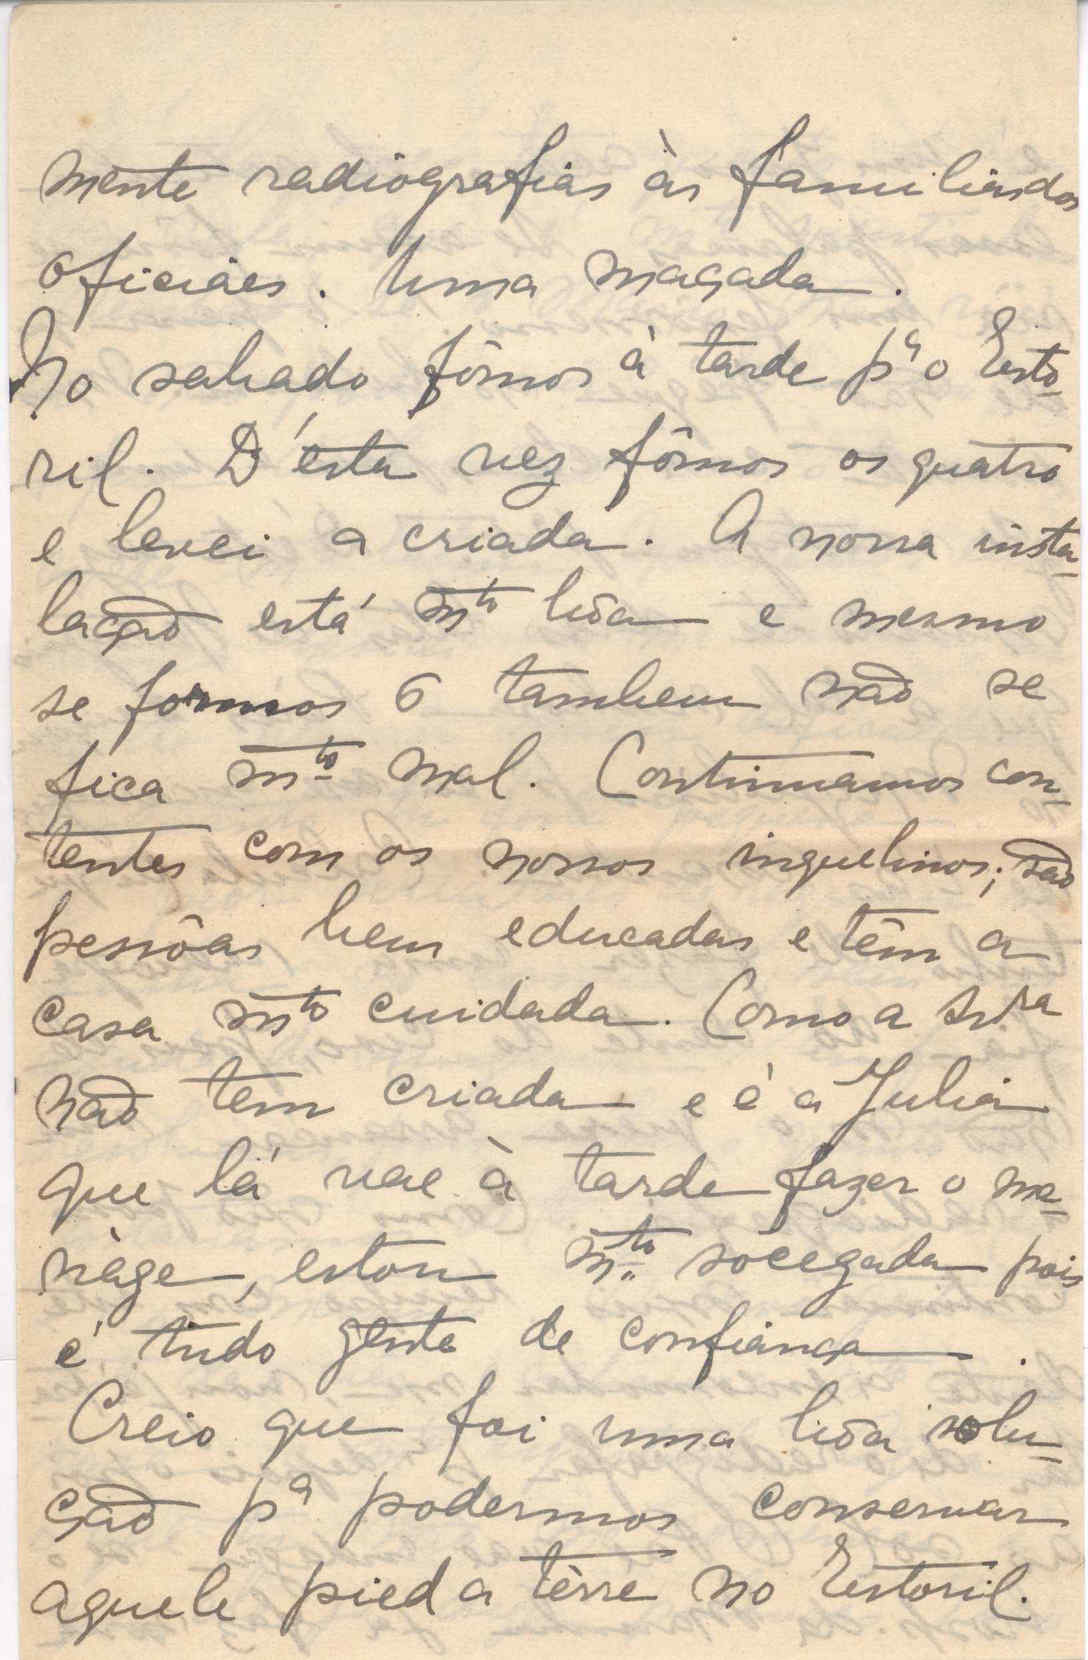 mente radiografias às familias dos
oficiáes. Uma maçada.
No sabado fômos à tarde pª o Esto-
ril. D'ésta vez fômos os quatro
e levei a criada. A nossa insta-
lação está mtº bôa e mesmo
se formos 6 tambem não se
fica mtº mal. Continuamos con-
tentes com os nossos inquelinos; são
pessôas bem educadas e têm a
casa mtº cuidada. Como a Snrª
não tem criada e é a Julia
que lá vae à tarde fazer o me-
nàge, estou mtº socegada pois
é tudo gente de confiança.
Creio que foi uma bôa solu-
ção pª podermos conservar
aquele pied a tèrre no Estoril.